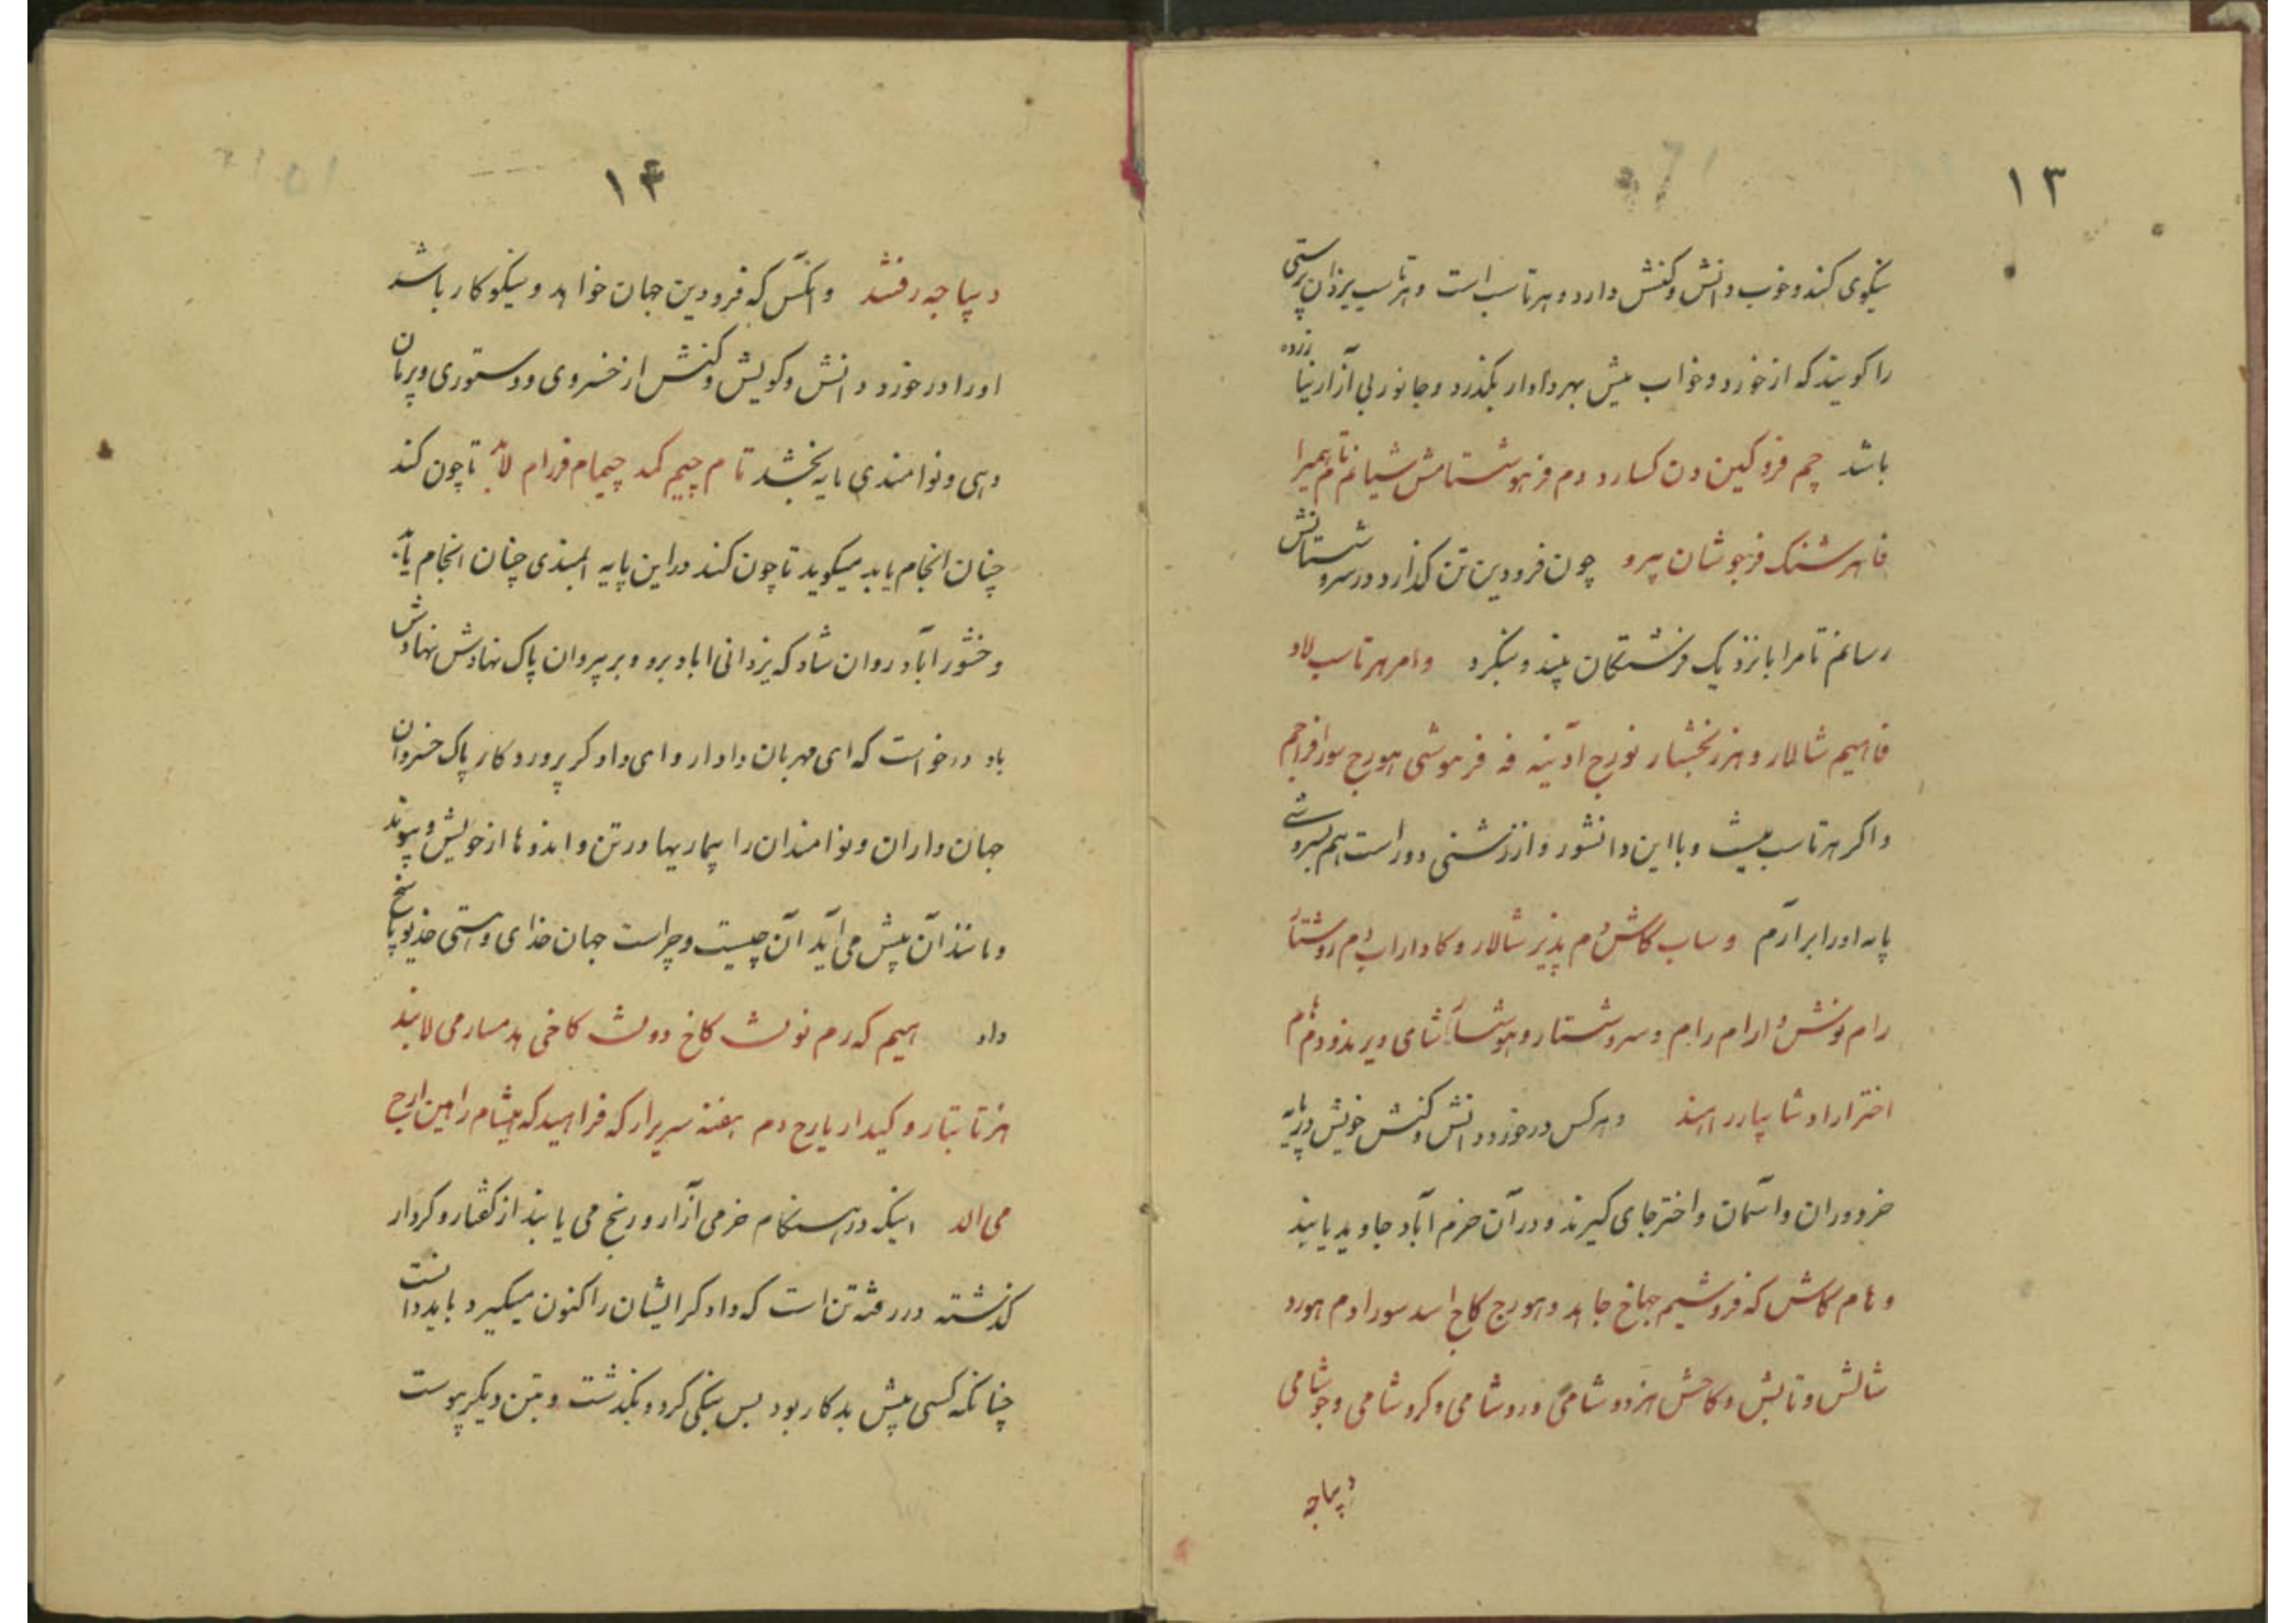 ۱۳
نیکوی کند و خوب دانش و کنش دارد و هرتاسب است و هرتاسب یزدان پرستی
را کویند که از خورد و خواب میش بهر دادار بکذرد و جانور بی آزار نیازرده
باشد چم فروکین دن کسارد دم فرهوشتامش شیانم تام همیرا
فاهرشنک فرهوشان پرو چون فرودین تن کذارد در سروشستانش
رسانم تا مرا با نزدیک فرشتکان بیند و نکرد وامر هرتاسب لاد
فاهیم شالار و هنر نخشار نورج ادنیه فه فرهوشی هورج سورافراجم
واکر هرتاسب نیست و با این دانشور و از زشتی دور است هم بسروشی
پایه اورا برآرم و ساب کاش دم پذیر شالار و کاداراب دم روشتار
رام نوش دارام رام و سروشتار و هوشاآشامی ویرندو دم هام
اختراراد شاپیارر اهند و هرکس در خورد دانش و کنش خویش در پایه
خردوران و آسمان و اختر جای کیرند و در آن خرم آباد جاوید پایند
و هام کاش که فروشیم جهاخ جاهد و هورج کاخ اسد سورادم هورد
شالش و تابش و کاخش هزدو شامی وردشامی و کروشامی و جوشامی
دیباجه
۱۴
دیباجه رفند و آنکس که فرودین جهان خواهد و نیکوکار باشد
اورا در خورد دانش و کویش و کنش از خسروی و دستوری و فرمان
دهی و نوامندی پایه بخشد تا م چیم کمد چیمام فرام لابد تا چون کند
چنان انجام یابد میکوید تا چون کند در این پایه بلندی چنان انجام یابد
وخشور آباد روان شاد که یزدانی اباد برو و بر پیروان پاک نهادش نهادش
باد درخواست که ای مهربان دادار و ای دادکر پروردکار پاک خسروان
جهان داران و نوامندان را بیماریها در تن و اندوها از خویش و پیوند
و مانند آن پیش می آید آن چیست و چراست جهان خدای و هستی خدیو پاسخ
داد اهیم که رم نولث کاخ دولث کاخی هد مسارمی لابند
هزتابتار و کیدار یارح دم هفنه سربرار که فراهید که هیشام راهین ارح
می الد اینکه در هنکام خرمی آزار و رنج می یابند از کفتار و کردار
کذشته در رفته تن است که دادکر ایشان را کنون میکیرد باید دانست
چنانکه کسی پیش بدکار بود پس نیکی کرد و بکذشت و بتن دیکر پیوست